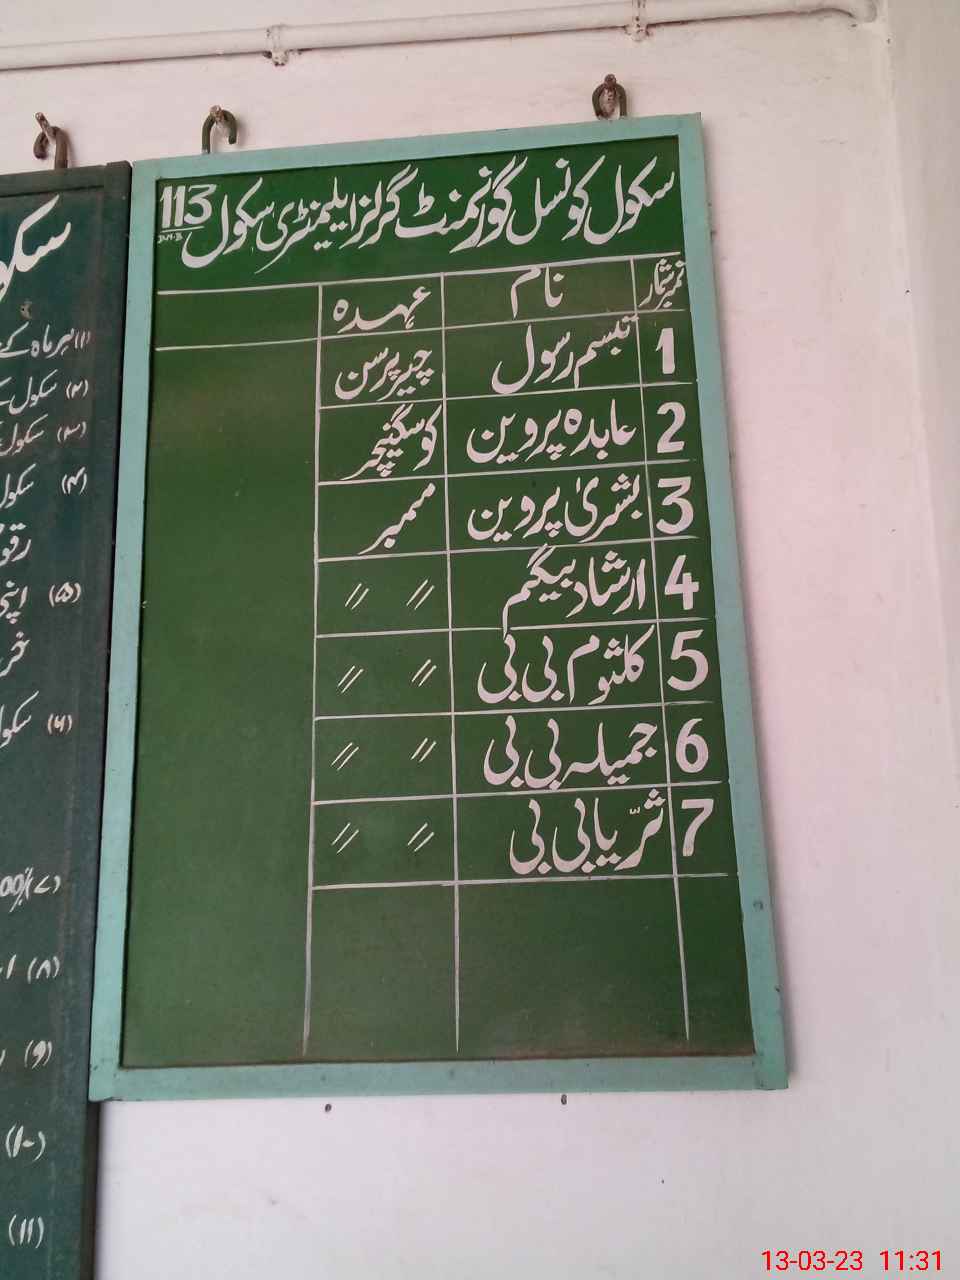 سکول کونسل گورنمنٹ گرلز ایلیمنٹری سکول 113
نمبر شمار نام عہدہ
1 تبسم رسول چیئرپرسن
2 عابدہ پروین کو سگنیچر
3 بشریٰ پروین ممبر
4 ارشاد بیگم // //
5 کلثوم بی بی // //
6 جمیلہ بی بی // //
7 ثریا بی بی // //
(۱) ہر ماہ کے
(۲) سکول
(۳) سکول
(۴) سکول
(۵) اپنی
(۶) سکول
(۷)
(۸)
(9)
(۱۰)
(۱۱)
13-03-23 11:31